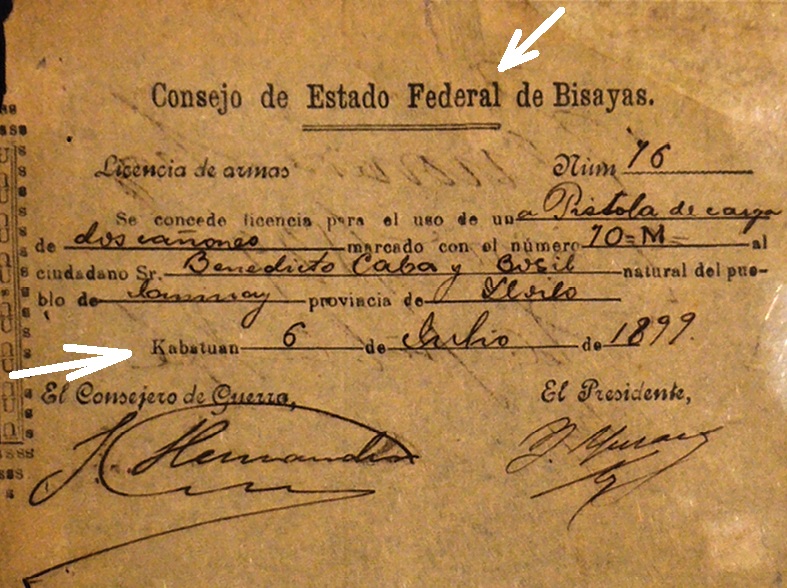 Consejo de Estado Federal de Bisayas.
Licencia de armas Núm 76
Se concede licencia para el uso de una Pistola de carga
de dos cañones marcado con el número 70=M= al
ciudadano Sr. Benedicto Caba y natural del pue-
blo de provincia de Iloilo
Kabatuan 6 de Julio de 1899.
El Consejero de Guerra, El Presidente,
Hernandez